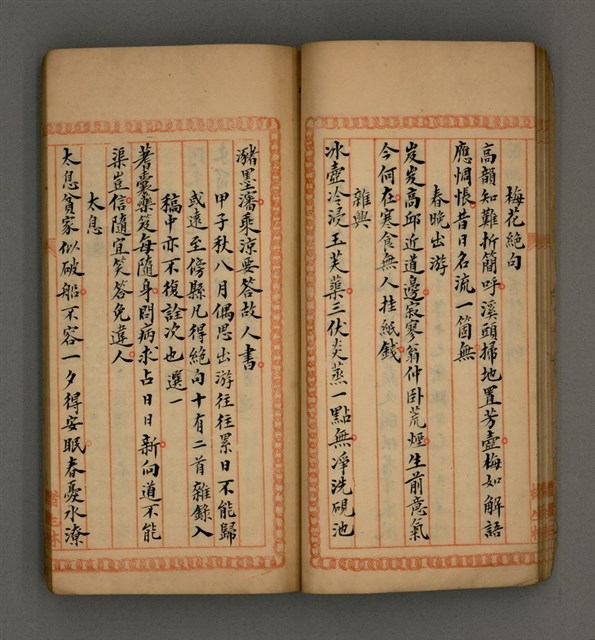 梅花絕句
高韻知難折簡呼溪頭掃地置芳壺梅如解語
應惆悵昔日名流一箇無
春晚出游
岌岌高邱近道邊寂寥翁仲卧荒煙生前意氣
今何在寒食無人挂紙錢
雜興
冰壺冷浸玉芙蕖三伏炎蒸一點無淨洗硯池
瀦墨瀋乘涼要答故人書
甲子秋八月偶思出游往往累日不能歸
或遠至傍縣凡得絕句十有二首雜錄入
稿中亦不復詮次也 選一
著囊藥笈每隨身問病求占日日新向道不能
渠豈信隨宜笑答免違人
太息
太息貧家似破船不容一夕得安眠春憂水潦